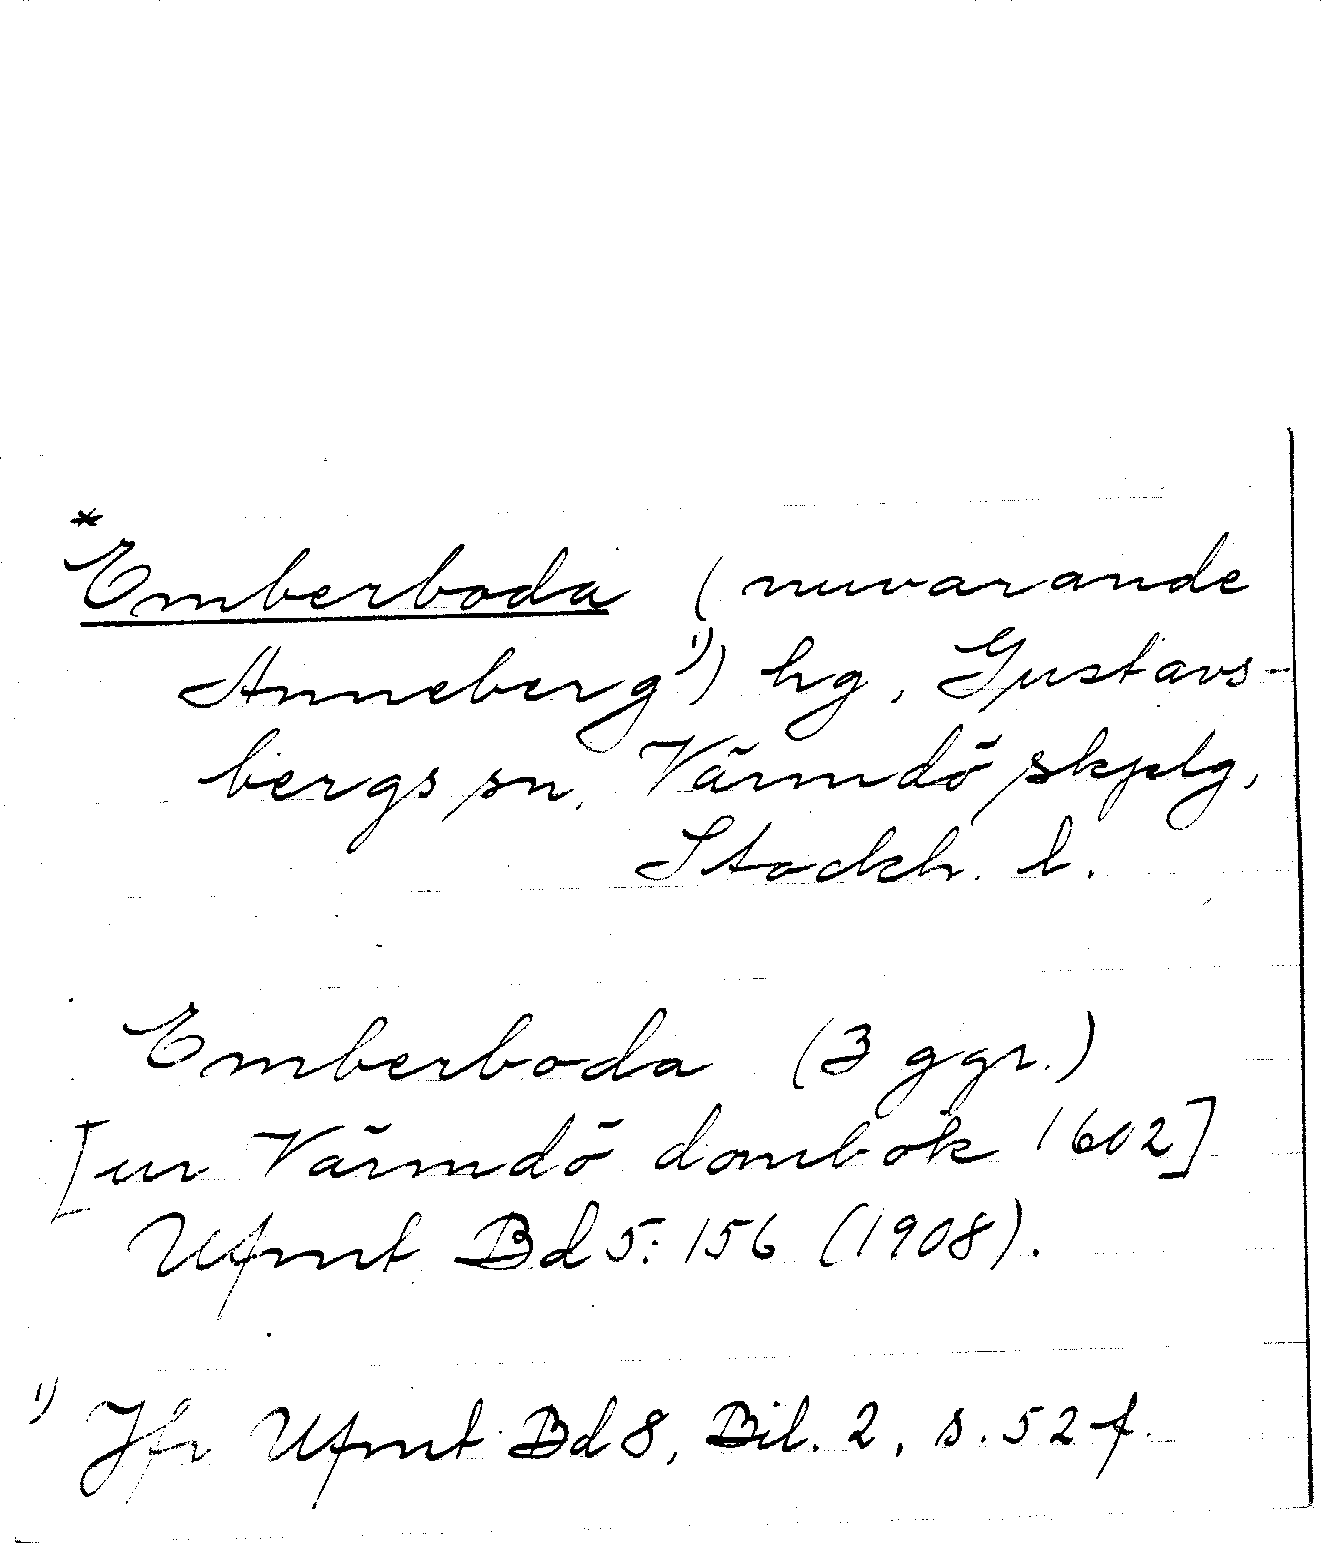 *
Emberboda (nuvarande
Anneberg¹⁾) hg, Gustavs-
bergs sn, Värmdö skplg,
Stockh. l.
Emberboda (3 ggr.)
[ur Värmdö dombok 1602]
Ufmt Bd 5: 156 (1908).
¹⁾ Jfr Ufmt Bd 8, Bil. 2, s. 52 f.